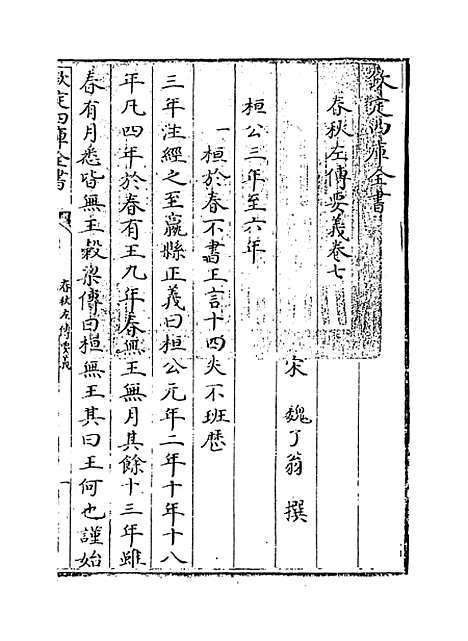 欽定四庫全書
春秋左傳要義卷七
宋　魏了翁　撰
桓公三年至六年
一桓於春不書王言十四失不班歴
三年注經之至嬴縣正義曰桓公元年二年十年十八
年凡四年於春有王九年春無王無月其餘十三年雖
春有月悉皆無王穀梁傳曰桓無王其曰王何也謹始
欽定四庫全書
春秋左傳要義
一